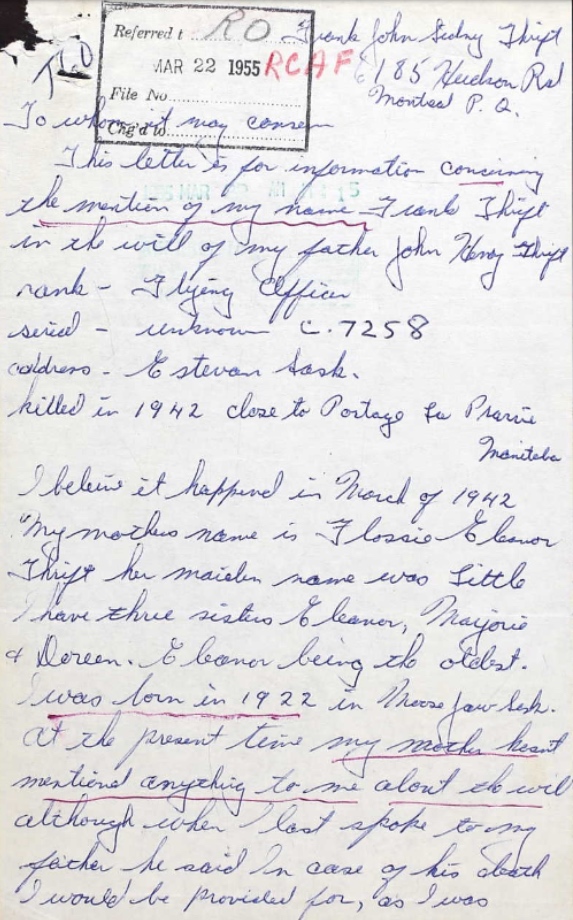 Referred t RO
MAR 22 1955 RCAF
File No
Chg'd to
Frank John Sidney Thrift
6185 Hudson Rd
Montreal P. Q.
To whom it may consern
This letter is for information concining
the mention of my name Frank Thrift
in the will of my father John Henry Thrift
rank - Flying Officer
serial - unknown C. 7258
address - Estevan Sask.
killed in 1942 close to Portage La Prarie
Manitoba
I beleive it happend in March of 1942
"My mothers name is Flossie Eleanor
Thrift her maiden name was Little
I have three sisters Eleanor, Marjorie
& Doreen. Eleanor being the oldest.
I was born in 1922 in Moose Jaw Sask.
At the present time my mother hasnt
mentioned anything to me about the will
although when I last spoke to my
father he said In case of his death
I would be provided for, as I was